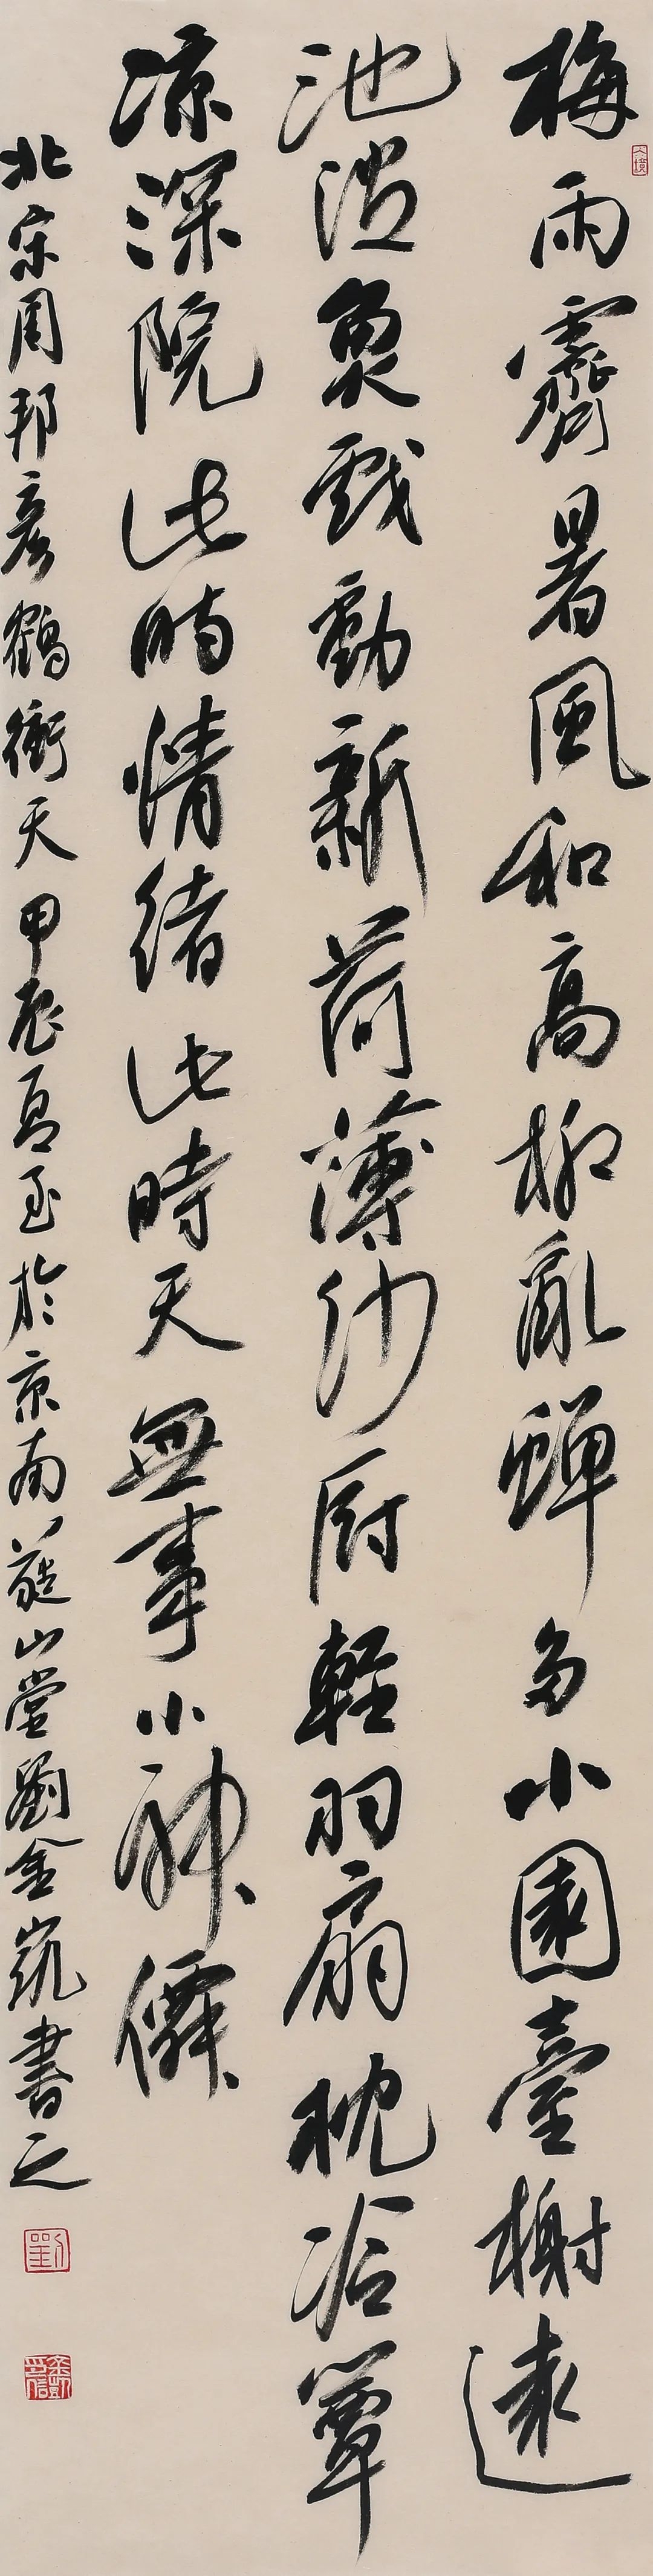 梅雨霽暑風和高柳亂蟬多小園臺榭遠
池波魚戲動新荷薄紗厨輕羽扇枕冷簟
凉深院此時情緒此時天無事小神僊
北宋周邦彥鶴衝天甲辰夏至於京南蕤山堂劉金凱書之
劉